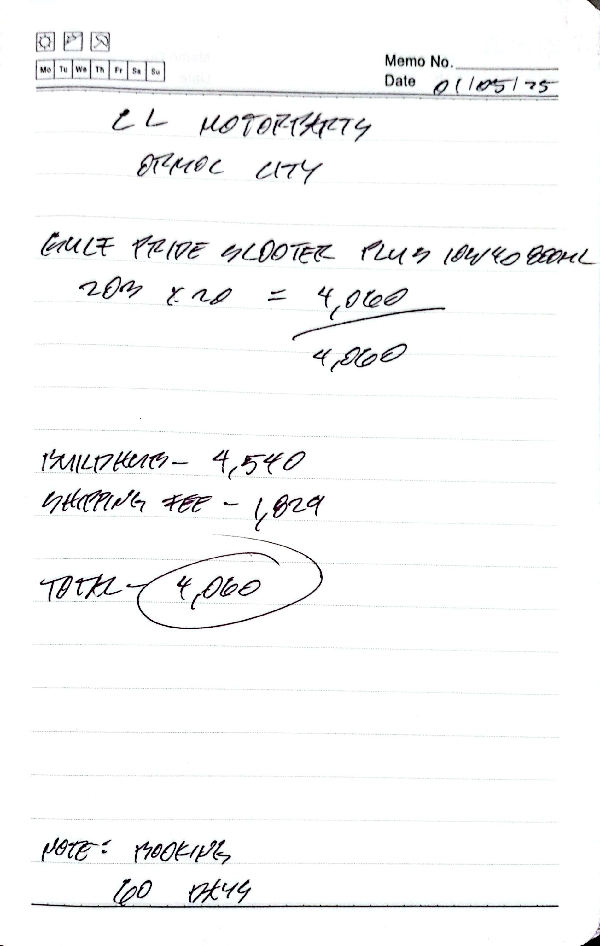 Mo Tu We Th Fr Sa Su
Memo No.
Date 01/05/25
EL MOTORPARTS
ORMOC CITY
GULF PRIDE SCOOTER PLUS 10W/40 800ML
203 x 20 = 4,060
4,060
BUILDHUB - 4,540
SHIPPING FEE - 1,829
TOTAL - 4,060
NOTE: BOOKING
60 DAYS